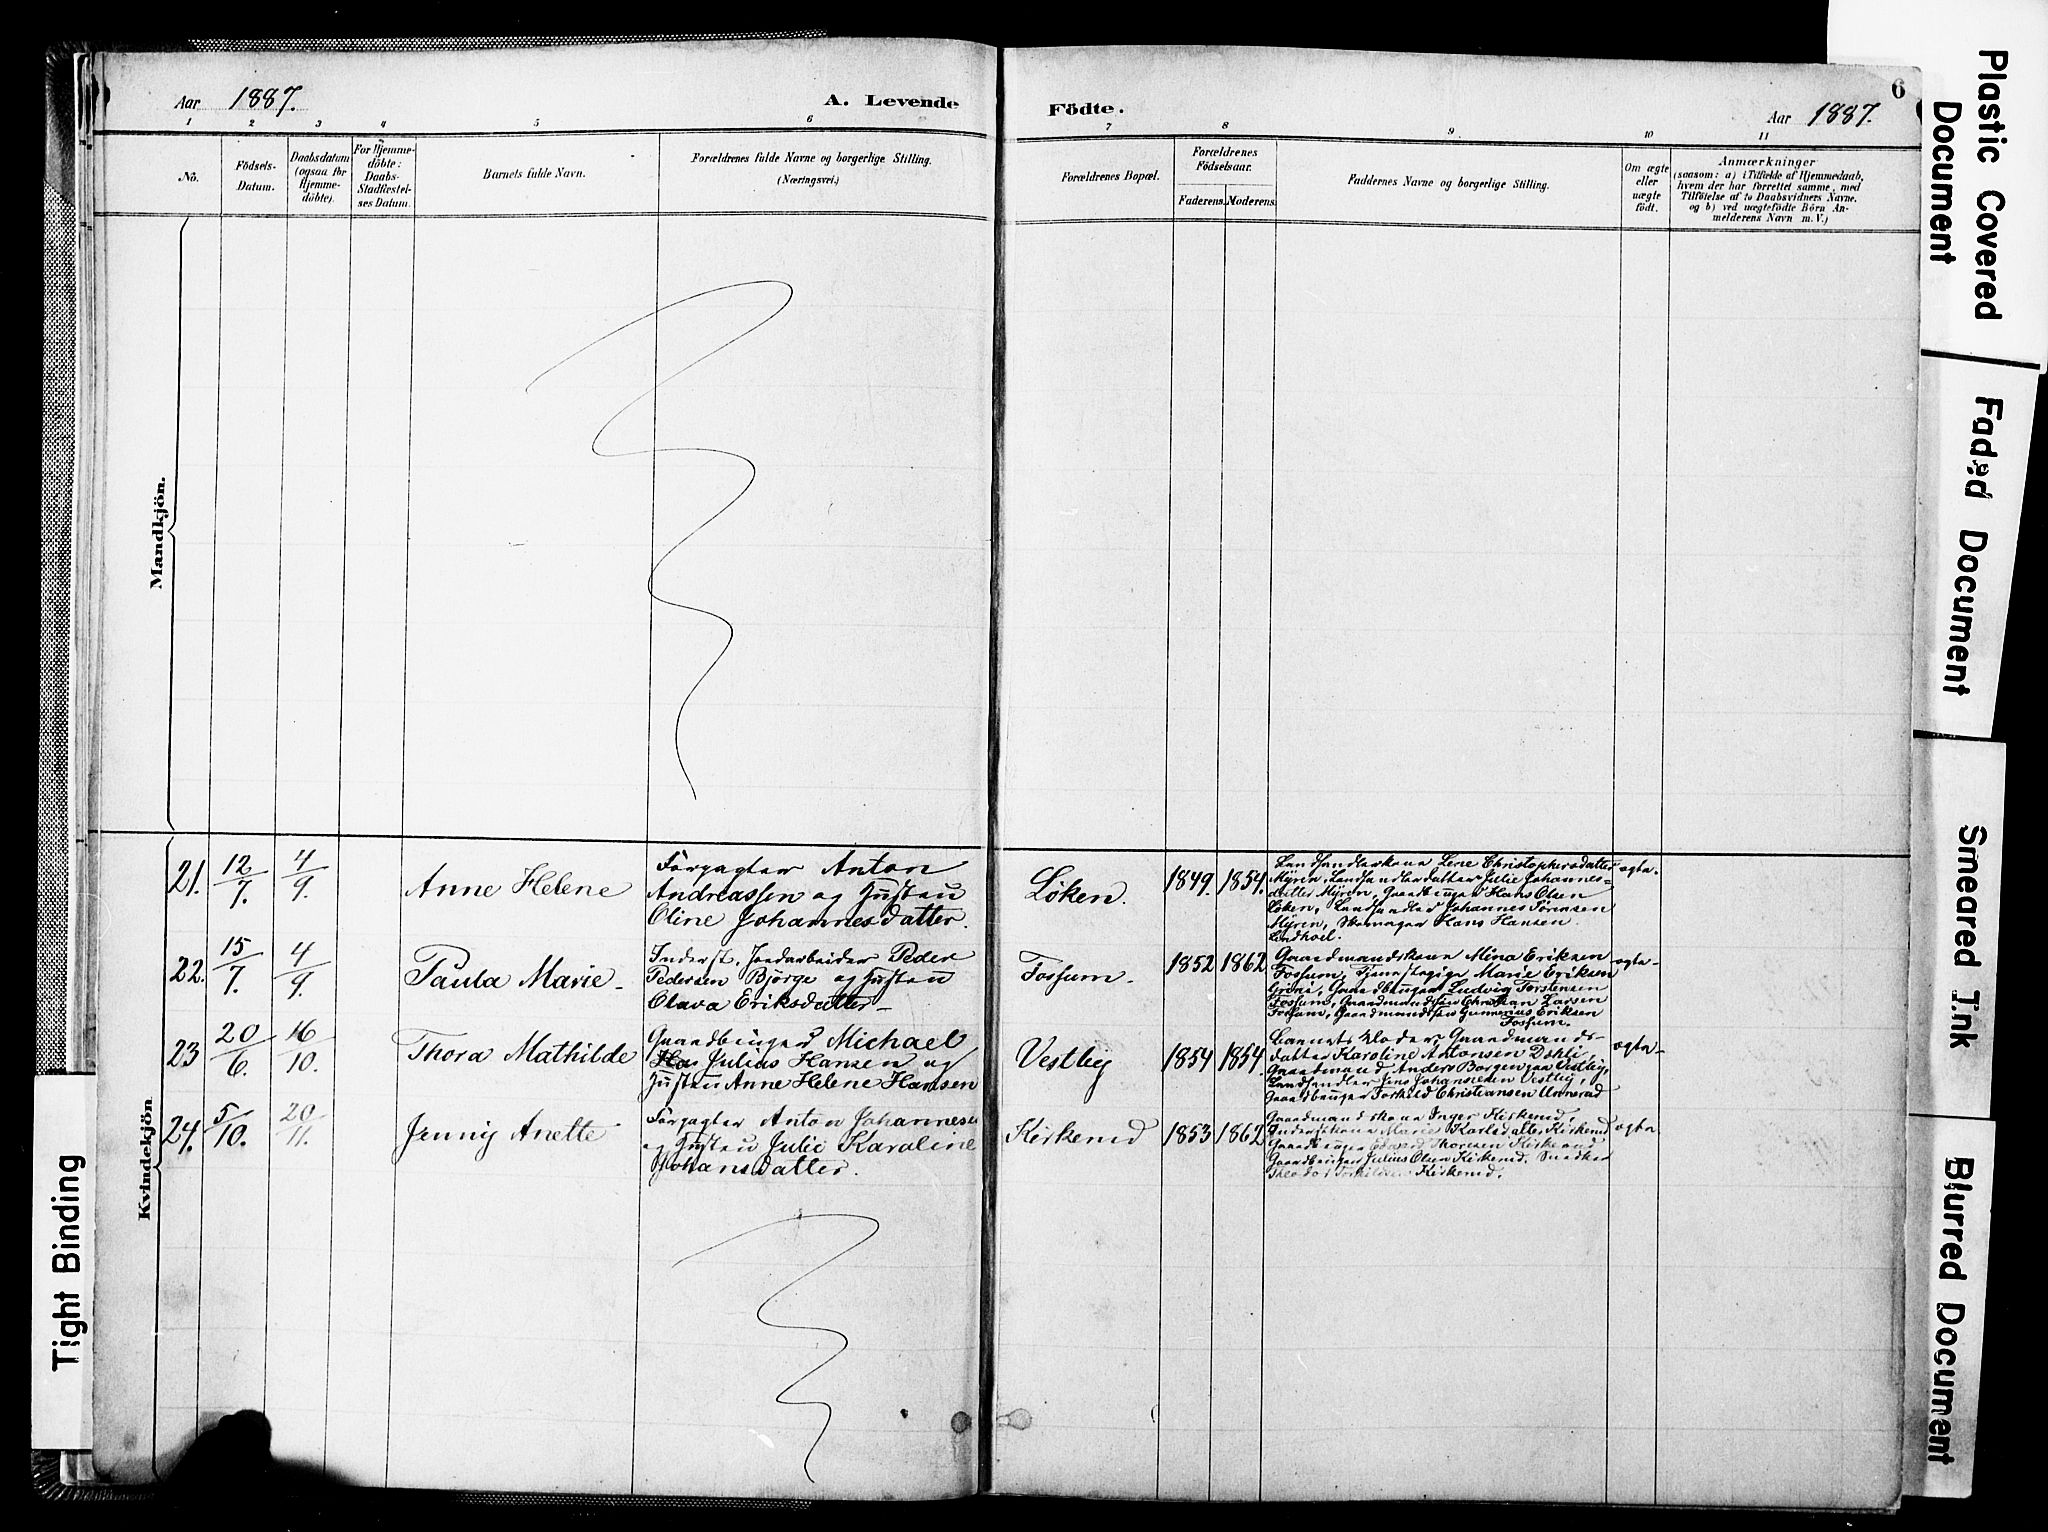 Aar 1887. A. Levende
1 2 3 4 5 6
No.
Födsels-
Datum.
Daabsdatum
(ogsaa for
Hjemme-
döbte).
For Hjemme-
döbte:
Daabs-
Stadfæstel-
ses Datum.
Barnets fulde Navn.
Forældrenes fulde Navne og borgerlige Stilling.
(Næringsvei.)
Mandkjön.
Kvindekjön
21. 12/7. 4/9. Anne Helene
Forpagter Anton
Andreassen og Hustru
Oline Johannesdatter.
22. 15/7. 4/9. Paula Marie
Inderst, Jordarbeider Peder
Pedersen Bjørge og Hustru
Olava Eriksdatter
23 20/6. 16/10. Thora Mathilde
Gaardbruger Michael
Julius Hansen og
Hustru Anne Helene Hansen
24. 5/10. 20/11. Jenny Anette
Forpagter Anton Johannesen
og Hustru Julie Karoline
Johansdatter.
Födte. Aar 1887.
6
7 8 9 10 11
Forældrenes Bopæl.
Forældrenes
Födselsaar.
Faderens. Moderens.
Faddernes Navne og borgerlige Stilling.
Om ægte
eller
uægte
födt.
Anmærkninger
(saasom: a) i Tilfælde af Hjemmedaab,
hvem der har forrettet samme, med
Tilföielse af to Daabsvidners Navne.
og b) ved uægtefödte Börn An-
melderens Navn m. V.)
Løken. 1849. 1854.
Landhandlerkone Lene Christophersdatter ægte.
Myren, Landhandlerdatter Julie Johannes-
datter Myren, Gaardbruger Hans Olsen
Løken, Landhandler Johannes Sørensen
Myren, Skomager Hans Hansen
Fossum. 1852 1862
Gaardmandskone Mina Eriksen ægte
Fossum, Tjenestepige Marie Eriksen
Gaardbruger Ludvig Torstensen
Fossum, Gaardmandssøn Christian Larsen
Fossum, Gaardmandssøn Gunnerius Eriksen
Fossum.
Vestby 1854 1854.
Barnets Moder, Gaardmands- ægte
datter Karoline Antonsen Dæhli,
Gaardmand Anders Borgen paa Vestby,
Landhandler Jens Johannesen Vestby,
Gaardbruger Torkild Christiansen Unnerud
Kirkerud 1853 1862
Gaardmandskone Inger Kirkerud, ægte
Inderstkone Marie Karlsdatter Kirkerud
Gaardbruger Edvard Thoresen Kirkerud
Gaardbruger Julius Olsen Kirkerud, Snedker
Theodor Torkildsen Kirkerud.
Plastic Covered
Document
Faded Document
Smeared Ink
Blurred Document
Tight Binding